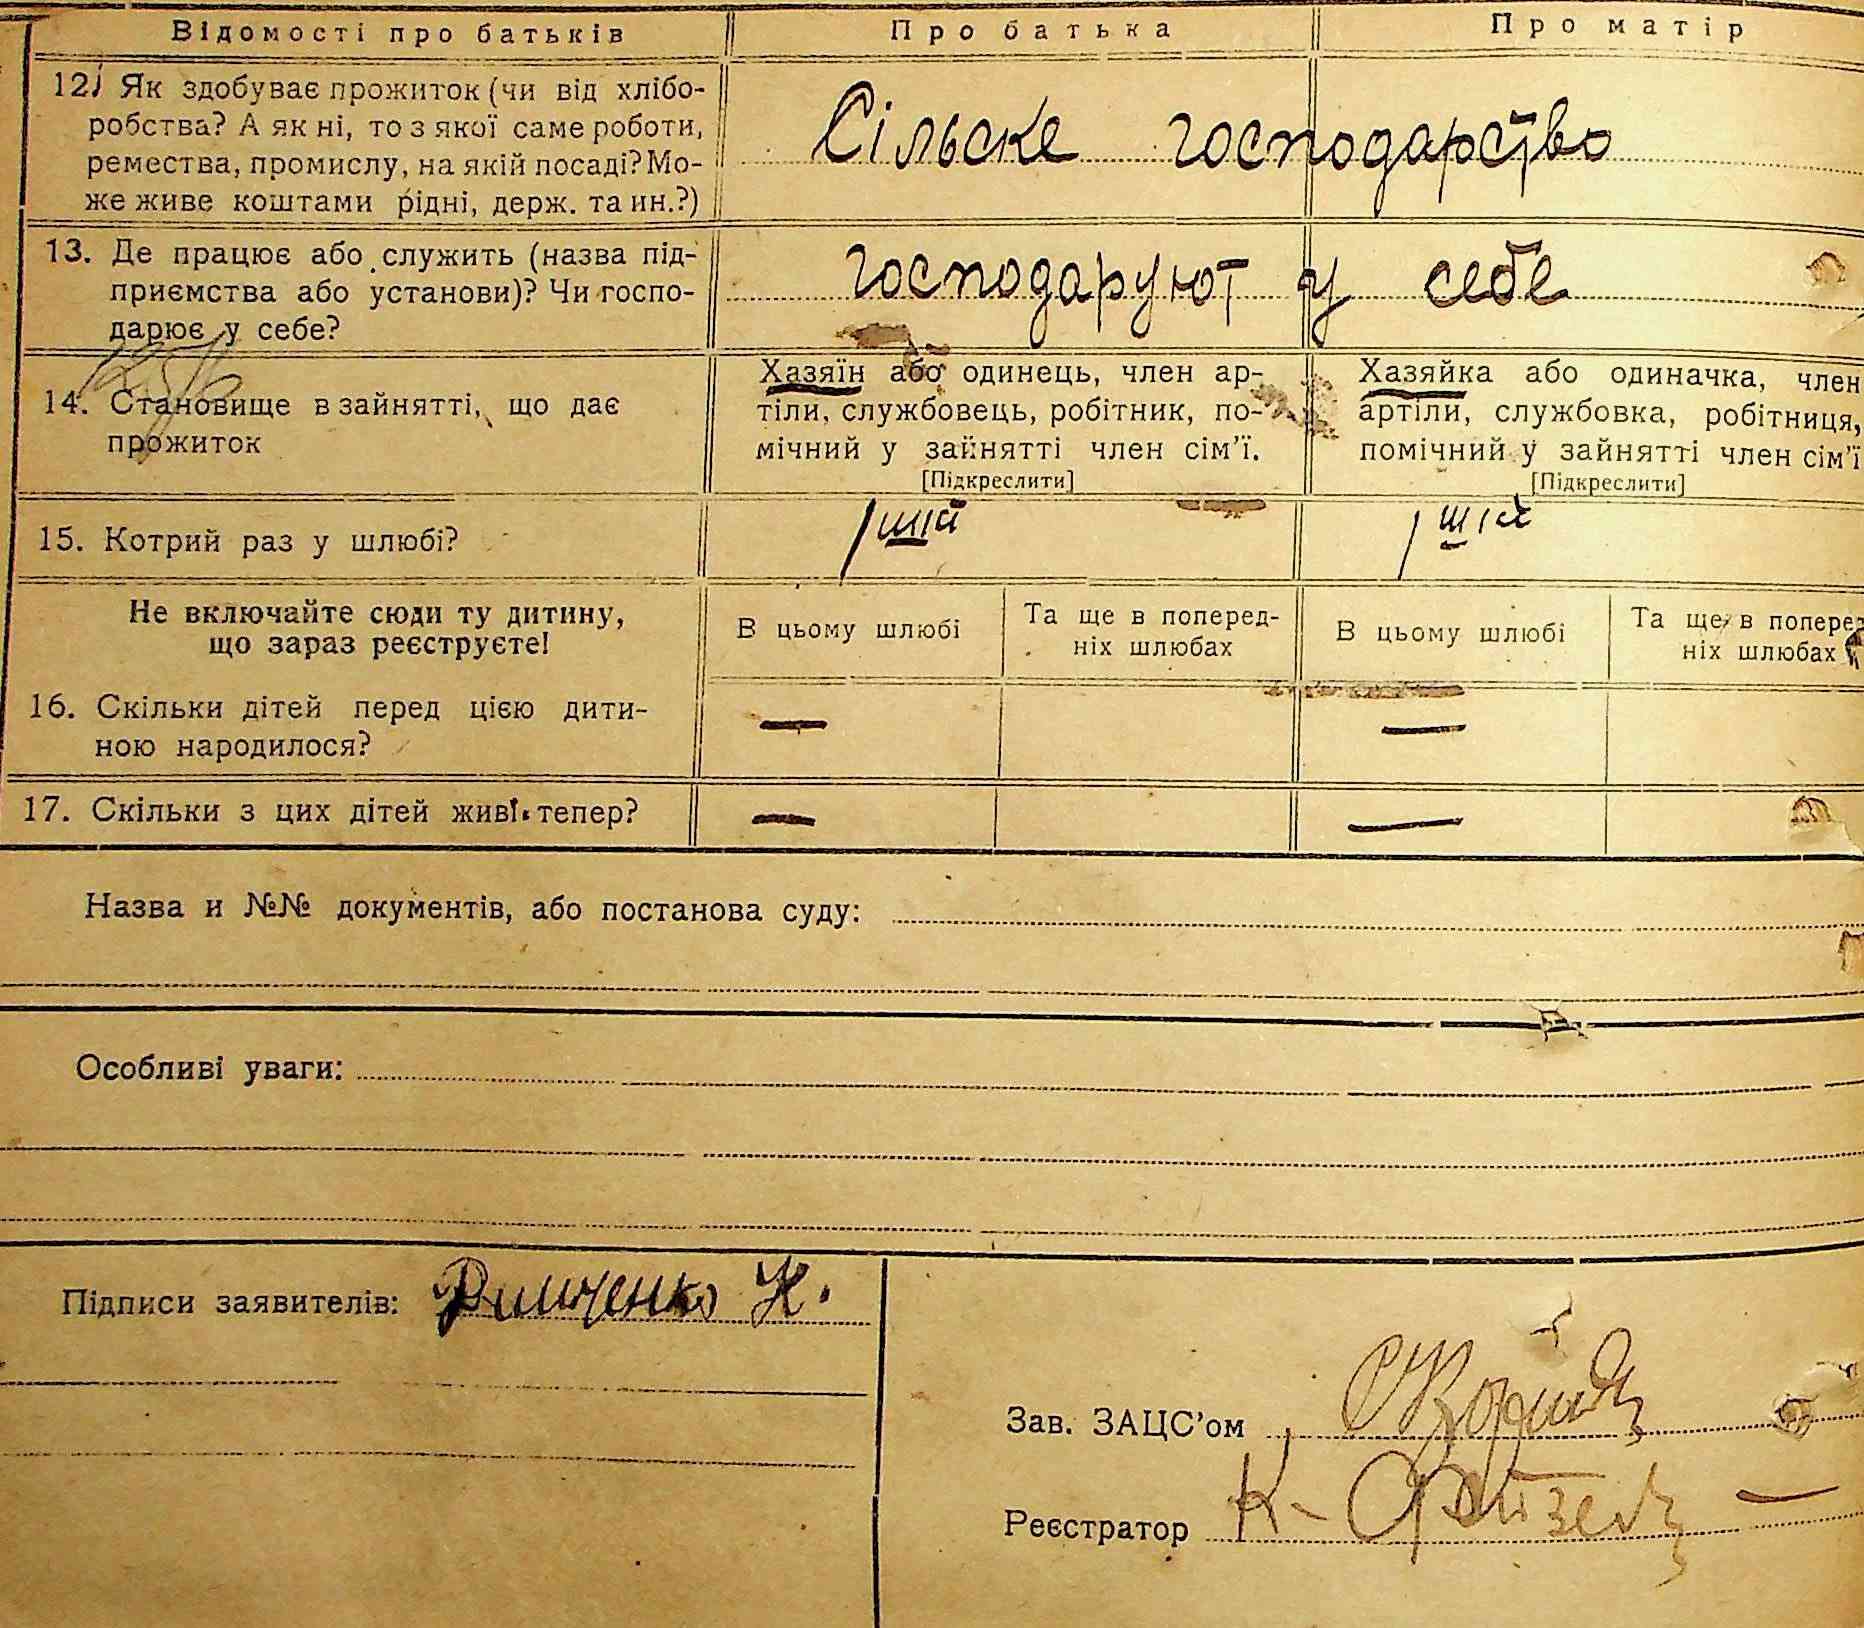 Відомості про батьків Про батька Про матір
12. Як здобуває прожиток (чи від хлібо-
робства? А як ні, то з якої саме роботи,
ремества, промислу, на якій посаді? Мо-
же живе коштами рідні, держ. та ин.?)
Сільске господарство
13. Де працює або служить (назва під-
приємства або установи)? Чи госпо-
дарює у себе?
господаруют у себе
14. Становище в зайнятті, що дає
прожиток
Хазяїн або одинець, член ар-
тіли, службовець, робітник, по-
мічний у зайнятті член сім'ї.
[Підкреслити]
Хазяйка або одиначка, член
артіли, службовка, робітниця,
помічний у зайнятті член сім'ї
[Підкреслити]
15. Котрий раз у шлюбі?
1ший 1ший
Не включайте сюди ту дитину,
що зараз реєструєте!
В цьому шлюбі
Та ще в поперед-
ніх шлюбах
В цьому шлюбі
Та ще в попере
ніх шлюбах
16. Скільки дітей перед цією дити-
ною народилося?
— —
17. Скільки з цих дітей живі тепер?
— —
Назва и №№ документів, або постанова суду:
Особливі уваги:
Підписи заявителів: К.
Зав. ЗАЦС'ом
Реєстратор К-